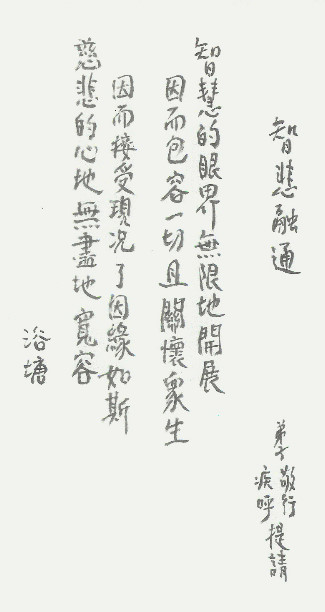 智悲融通
弟子敬行
疾呼提請
智慧的眼界無限地開展
因而包容一切且關懷眾生
因而接受現況了因緣如斯
慈悲的心地無盡地寬容
浴塘